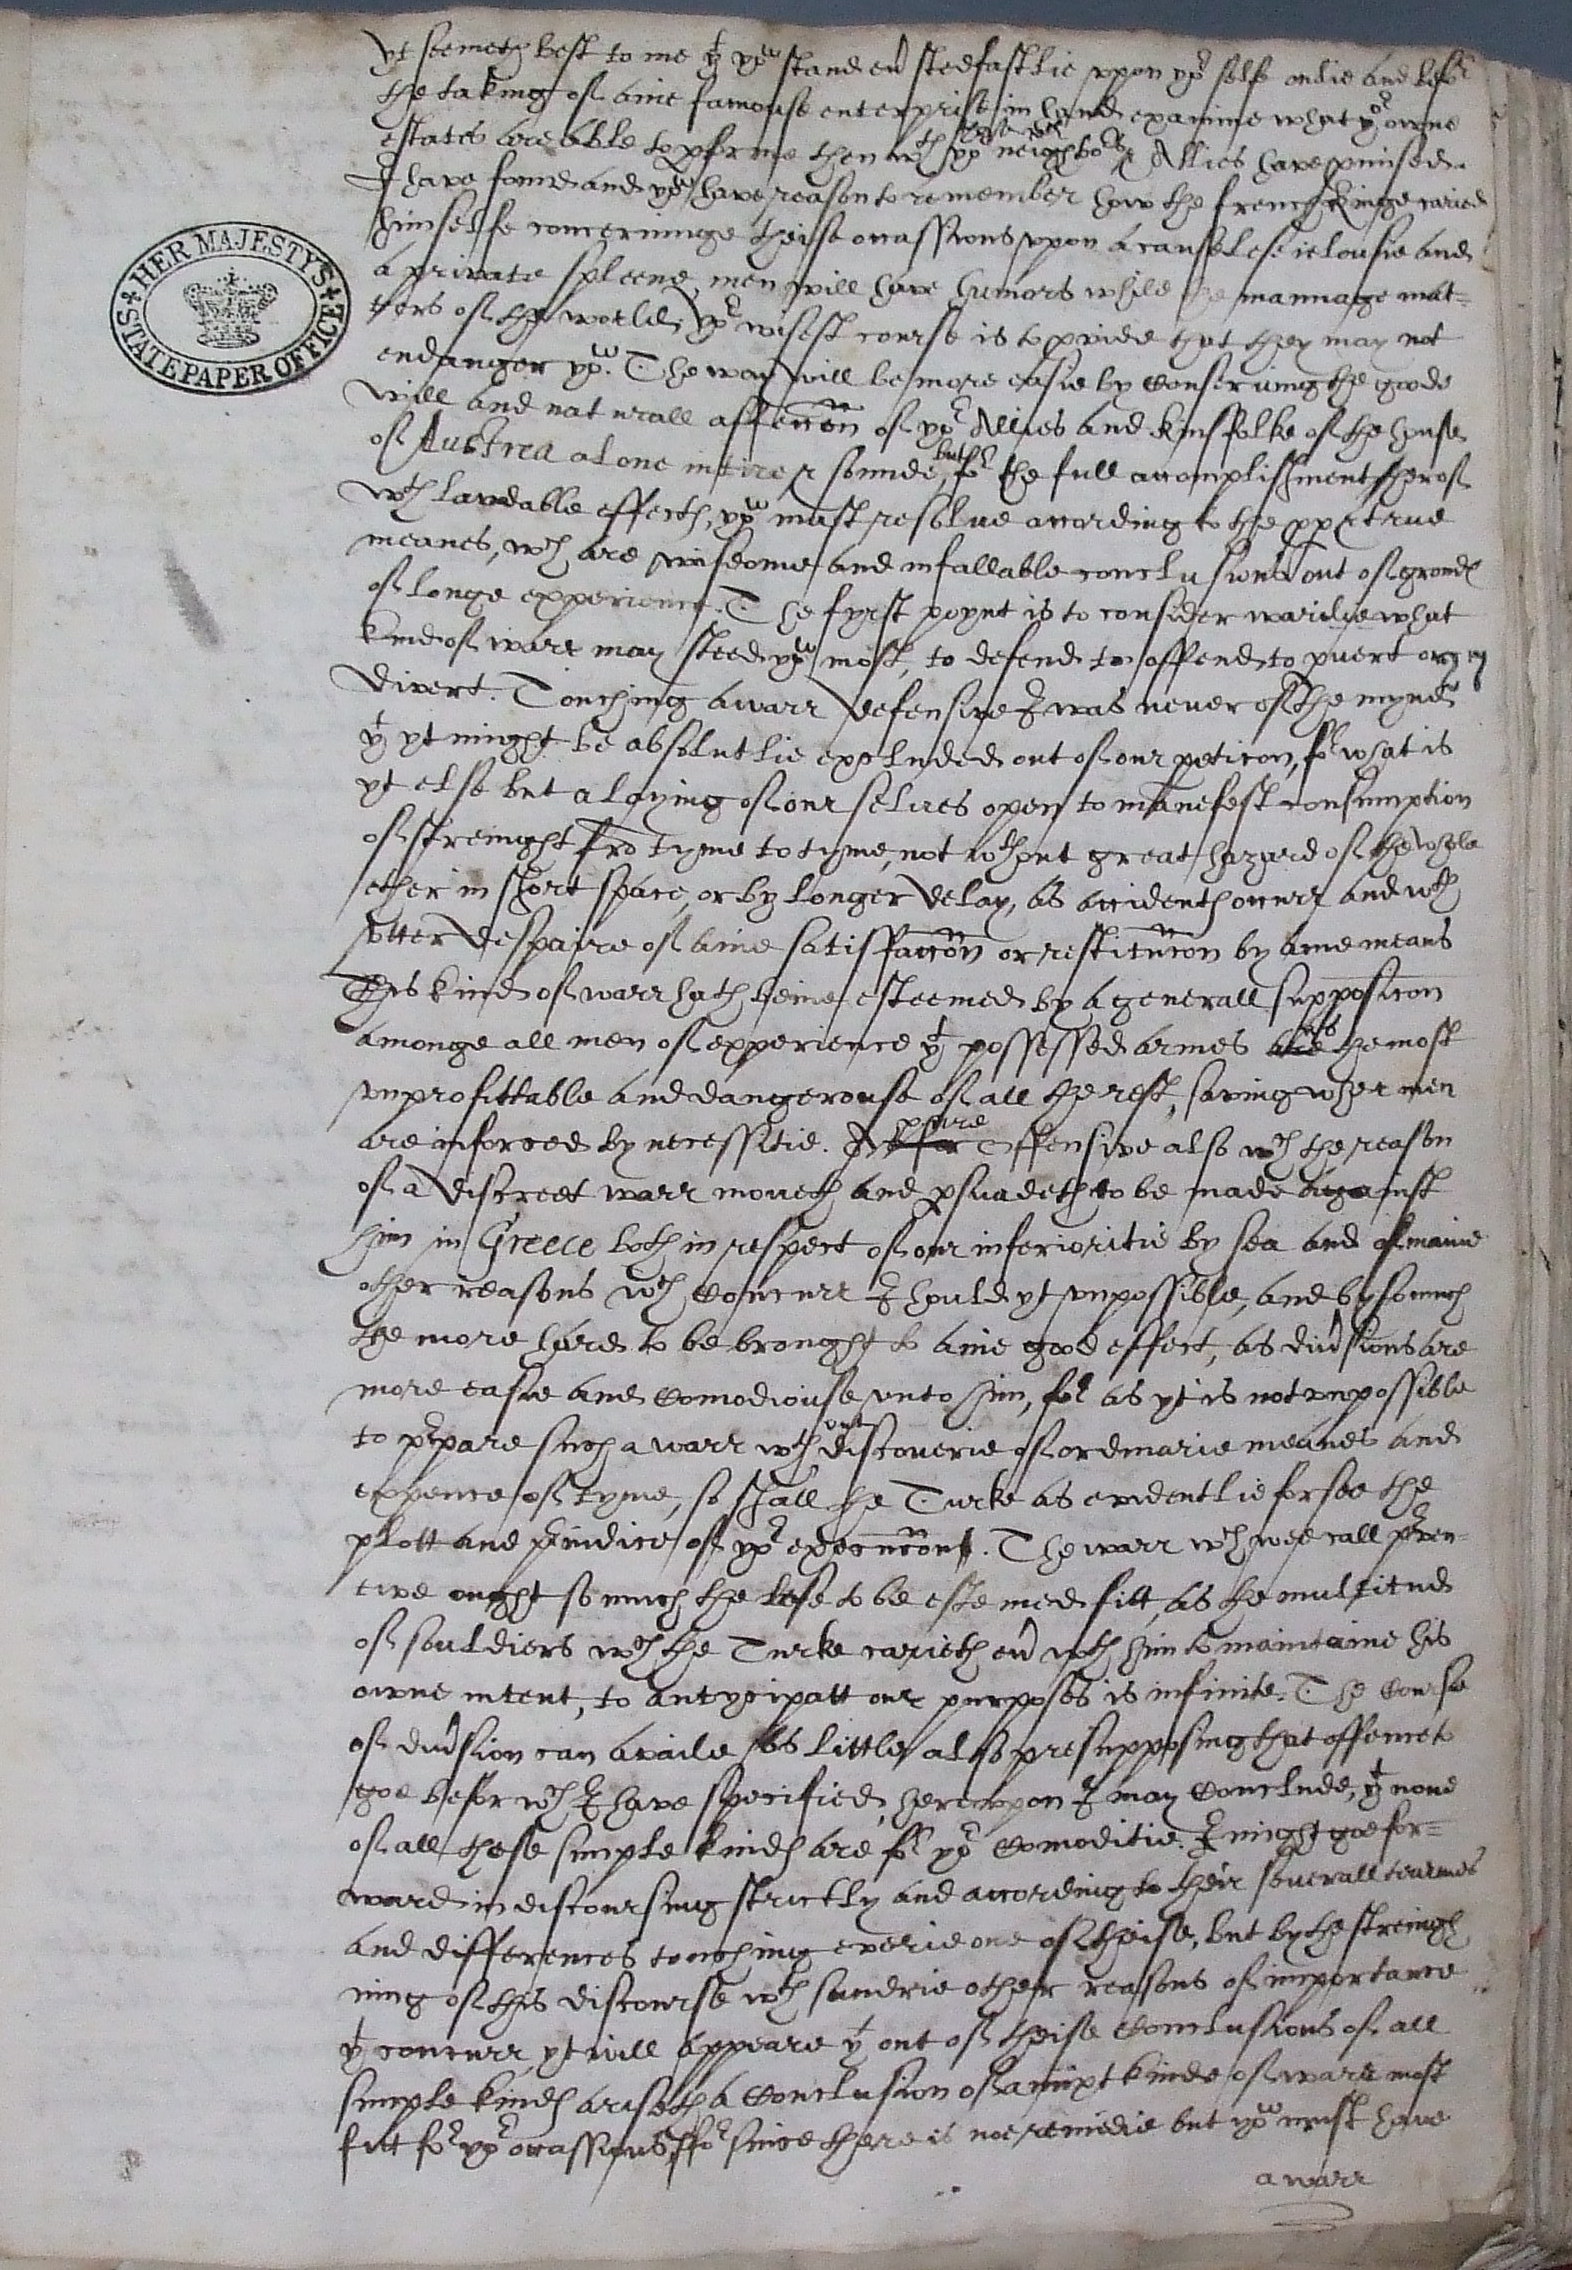 yt seemeth best to me yt yow stand eu) stedfastlie vppon yor selfe onlie and befor
the taking of anie famouse enterprise in hand examine what yor owne
estates are able to pforme then wth yor neighbors & Allies have pmised.
I have found and yow have reason to remember how the french kinge caried
himselfe concerninge theise occassions vppon a causelese ielousie and
a private spleene, men will have humors while the mannage mat=
ters of the world, yor wisest course is to pvide that they may not
endanger yow. The way will be more easie by conserving the good
will and naturall affeccon of yor Allies and kinsfolke of the house
of Austrea alone intire & sounde, but for the full accomplishment therof
wth lawdable effects, yow must resolue according to the pp & true
meanes, wch are wisdome and infallable conclusions out of grownds
of longe expperience. The fyrst poynt is to consider warilie what
kind of warr may steed yow most, to defend to offend to pvert or
divert. Touching a warr defensive I was never of the mynd
yt yt might be absolutlie excluded out of our peticon, for what is
yt else but a laying of our selves open to manefest consumption
of streinght fro tyme to tyme, not wthout great hazard of the whole
ether in short space, or by longer delay, as accidents occurr and wth
vtter despaire of anie satisffaccon or restitucon by anie means
This kind of warr hath beine esteemed by a generall supposicon
amonge all men of expperience yt possessed armes as the most
vnprofittable and dangerouse of all the rest, saving wher men
are inforced by necessitie. A pure offensive also wch the reason
of a discreet warr moueth and pswadeth to be made against
him in Greece both in respect of our inferioritie by sea and of manie
other reasons wch concurr I hould yt vnpossible, and by so much
the more hard to be brought to anie good effect, as diu)sions are
more easie and comodiouse vnto him, for as yt is not vnpossible
to prpare such a warr wthout discouerie of ordinarie meanes and
expence of tyme, so shall the Turke as evidentlie forsee the
plott and prindice of yor execucons. The warr wch wee call prven=
tive ought so much the lese to be estemed fitt, as the multitud
of souldiers wch the Turke carieth eu) wth him to maintaine his
owne intent, to antycipatt our purposes is infinite. The course
of diu)sion can availe vs little also presupposing that offences
goe befor wch I have specified, herevppon I may conclude, yt none
of all these simple kinds are for yor comoditie. I might goe for=
ward in discoursing strictly and according to their seuerall tearmes
and differences touching everie one of theise, but by the streingth
ning of this discourse wth sundrie other reasons of importance
yt concurr yt will appeare yt out of theise conclusions of all
simple kinds ariseth a conclusion of a mixt kinde of warr most
fitt for yor occassions, ffor since there is noe remedie but yow must have
a warr
HER MAJESTY'S
STATE PAPER OFFICE